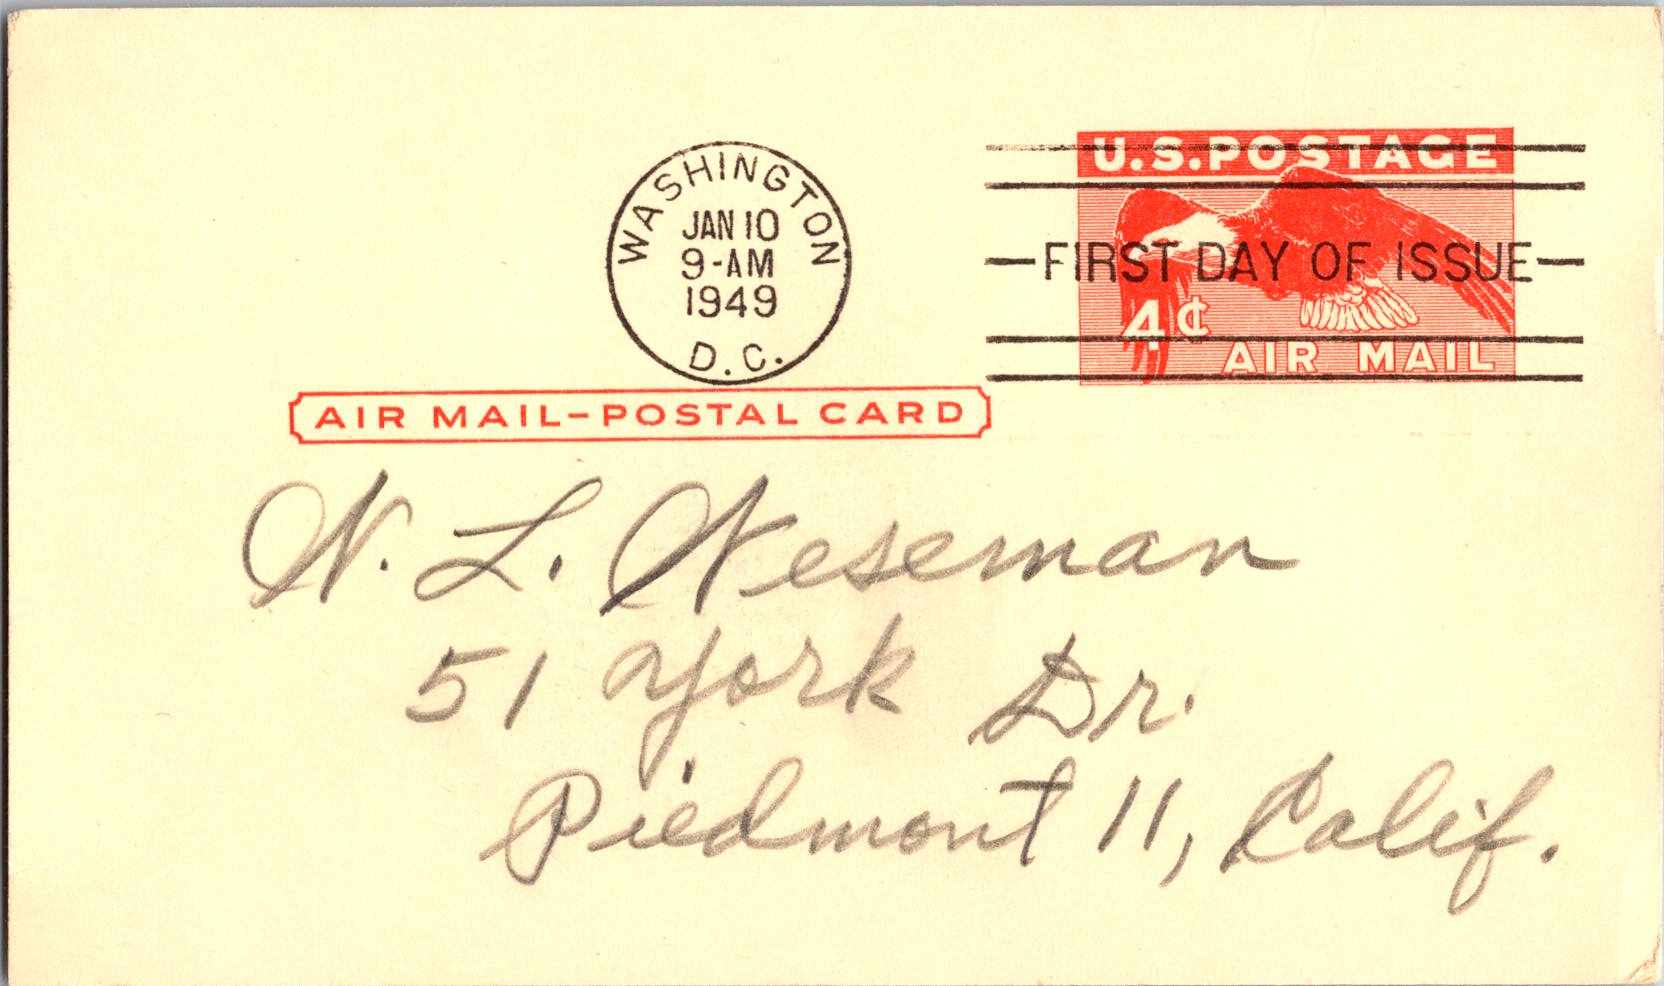 WASHINGTON
JAN 10
9-AM
1949
D.C.
U.S. POSTAGE
FIRST DAY OF ISSUE
4¢
AIR MAIL
AIR MAIL-POSTAL CARD
N. L. Neseman
51 York Dr.
Piedmont 11, Calif.